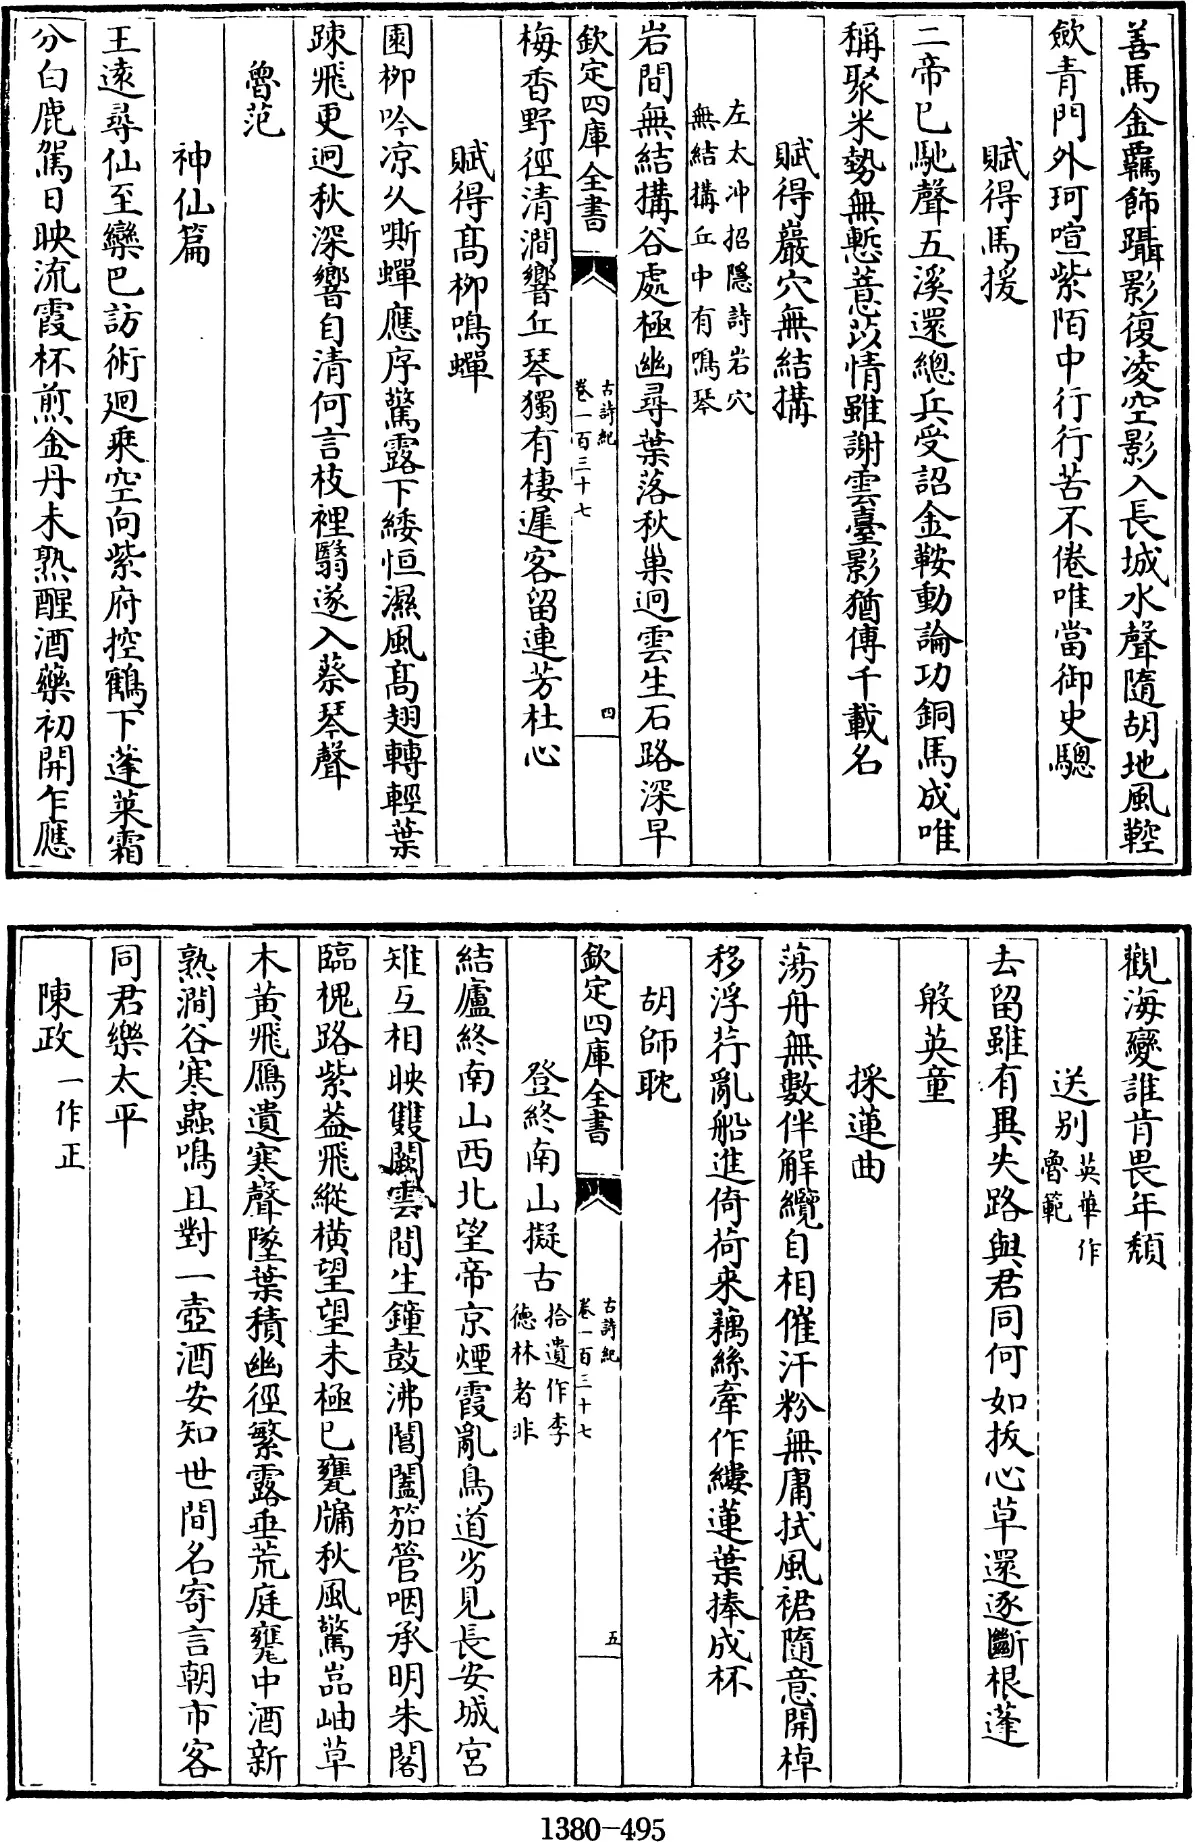 善馬金覊飾躡影復凌空影入長城水聲隨胡地風鞚
斂青門外珂喧紫陌中行行苦不倦唯當御史驄
賦得馬援
二帝已馳聲五溪還總兵受詔金鞍動論功銅馬成唯
稱聚米勢無慙薏苡情雖謝雲臺影猶傳千載名
賦得巖穴無結搆
左太冲招隱詩岩穴
無結搆丘中有鳴琴
岩間無結搆谷處極幽尋葉落秋巢迥雲生石路深早
欽定四庫全書
古詩紀
卷一百三十七
四
梅香野徑清澗響丘琴獨有棲遲客留連芳杜心
賦得髙栁鳴蟬
園栁吟凉乆嘶蟬應序驚露下緌恒濕風髙翅轉輕葉
踈飛更迥秋深響自清何言枝裡翳遂入蔡琴聲
魯范
神仙篇
王逺尋仙至欒巴訪術迴乘空向紫府控鶴下蓬萊霜
分白鹿駕日映流霞杯煎金丹未熟醒酒藥初開乍應
觀海變誰肯畏年頽
送別
英華作
魯範
去留雖有異失路與君同何如拔心草還逐斷根蓬
殷英童
採蓮曲
蕩舟無數伴解纜自相催汗粉無庸拭風裙隨意開棹
移浮荇亂船進倚荷来藕絲牽作縷蓮葉捧成杯
胡師耽
欽定四庫全書
古詩紀
卷一百三十七
五
登終南山擬古
拾遺作李
德林者非
結廬終南山西北望帝京煙霞亂鳥道劣見長安城宮
雉互相映雙闕雲間生鐘鼓沸閶闔笳管咽承明朱閣
臨槐路紫葢飛縱橫望望未極已甕牖秋風驚嵓岫草
木黄飛鴈遺寒聲墜葉積幽徑繁露垂荒庭甕中酒新
熟澗谷寒蟲鳴且對一壺酒安知世間名寄言朝市客
同君樂太平
陳政
一作正
1380-495